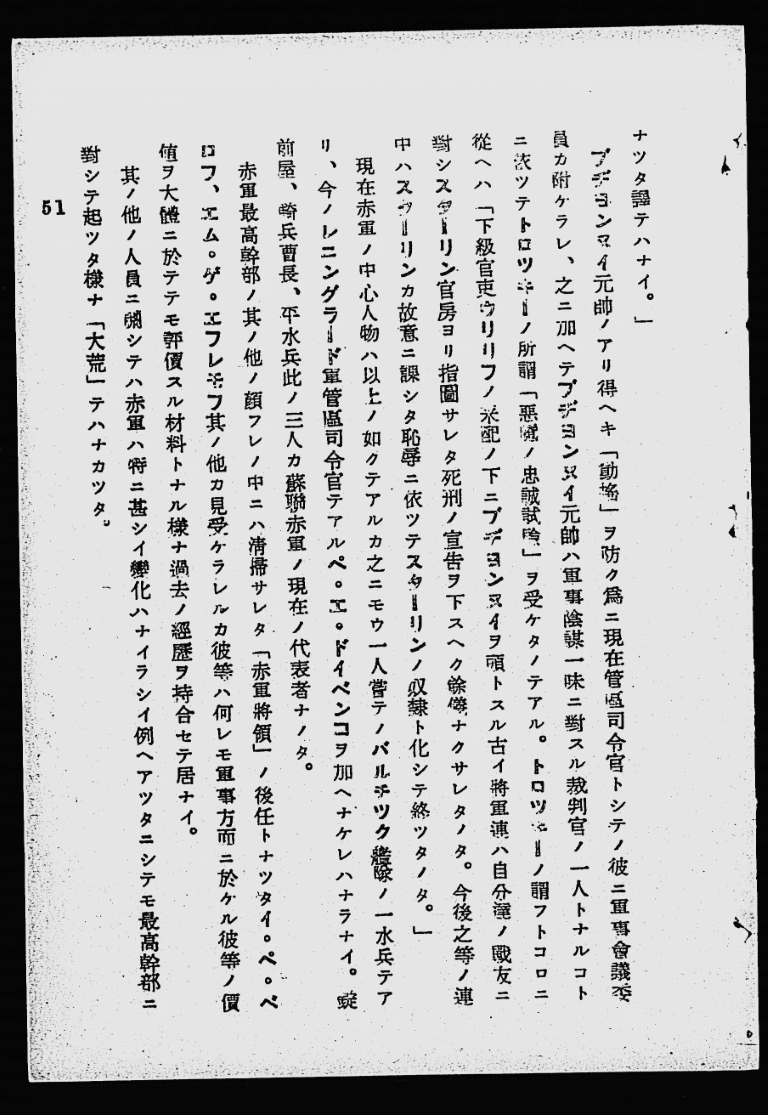 ナツタ譯テハナイ。」
ブヂヨンヌイ元帥ノアリ得ヘキ「動搖」ヲ防ク爲ニ現在管區司令官トシテノ彼ニ軍事會議委
員カ附ケラレ、之ニ加ヘテブヂヨンヌイ元帥ハ軍事陰謀一味ニ對スル裁判官ノ一人トナルコト
ニ依ツテトロツキーノ所謂「惡魔ノ忠誠試驗」ヲ受ケタノテアル。トロツキーノ謂フトコロニ
從ヘハ「下級官吏ウリリフノ采配ノ下ニブヂヨンヌイヲ頭トスル古イ將軍連ハ自分達ノ戰友ニ
對シスターリン官房ヨリ指圖サレタ死刑ノ宣告ヲ下スヘク餘儀ナクサレタノタ。今後之等ノ連
中ハスターリンカ故意ニ課シタ恥辱ニ依ツテスターリンノ奴隷ト化シテ終ツタノタ。」
現在赤軍ノ中心人物ハ以上ノ如クテアルカ之ニモウ一人嘗テノバルチツク艦隊ノ一水兵テア
リ、今ノレニングラード軍管區司令官テアルペ。エ。ドイベンコヲ加ヘナケレハナラナイ。錠
前屋、騎兵曹長、平水兵此ノ三人カ蘇聯赤軍ノ現在ノ代表者ナノタ。
赤軍最高幹部ノ其ノ他ノ顔フレノ中ニハ清掃サレタ「赤軍將領」ノ後任トナツタイ。ペ。ベ
ロフ、エム。ゲ。エフレモフ其ノ他カ見受ケラレルカ彼等ハ何レモ軍事方面ニ於ケル彼等ノ價
値ヲ大體ニ於テテモ評價スル材料トナル樣ナ過去ノ經歷ヲ持合セテ居ナイ。
其ノ他ノ人員ニ關シテハ赤軍ハ特ニ甚シイ變化ハナイラシイ例ヘアツタニシテモ最高幹部ニ
對シテ起ツタ樣ナ「大荒」テハナカツタ。
51